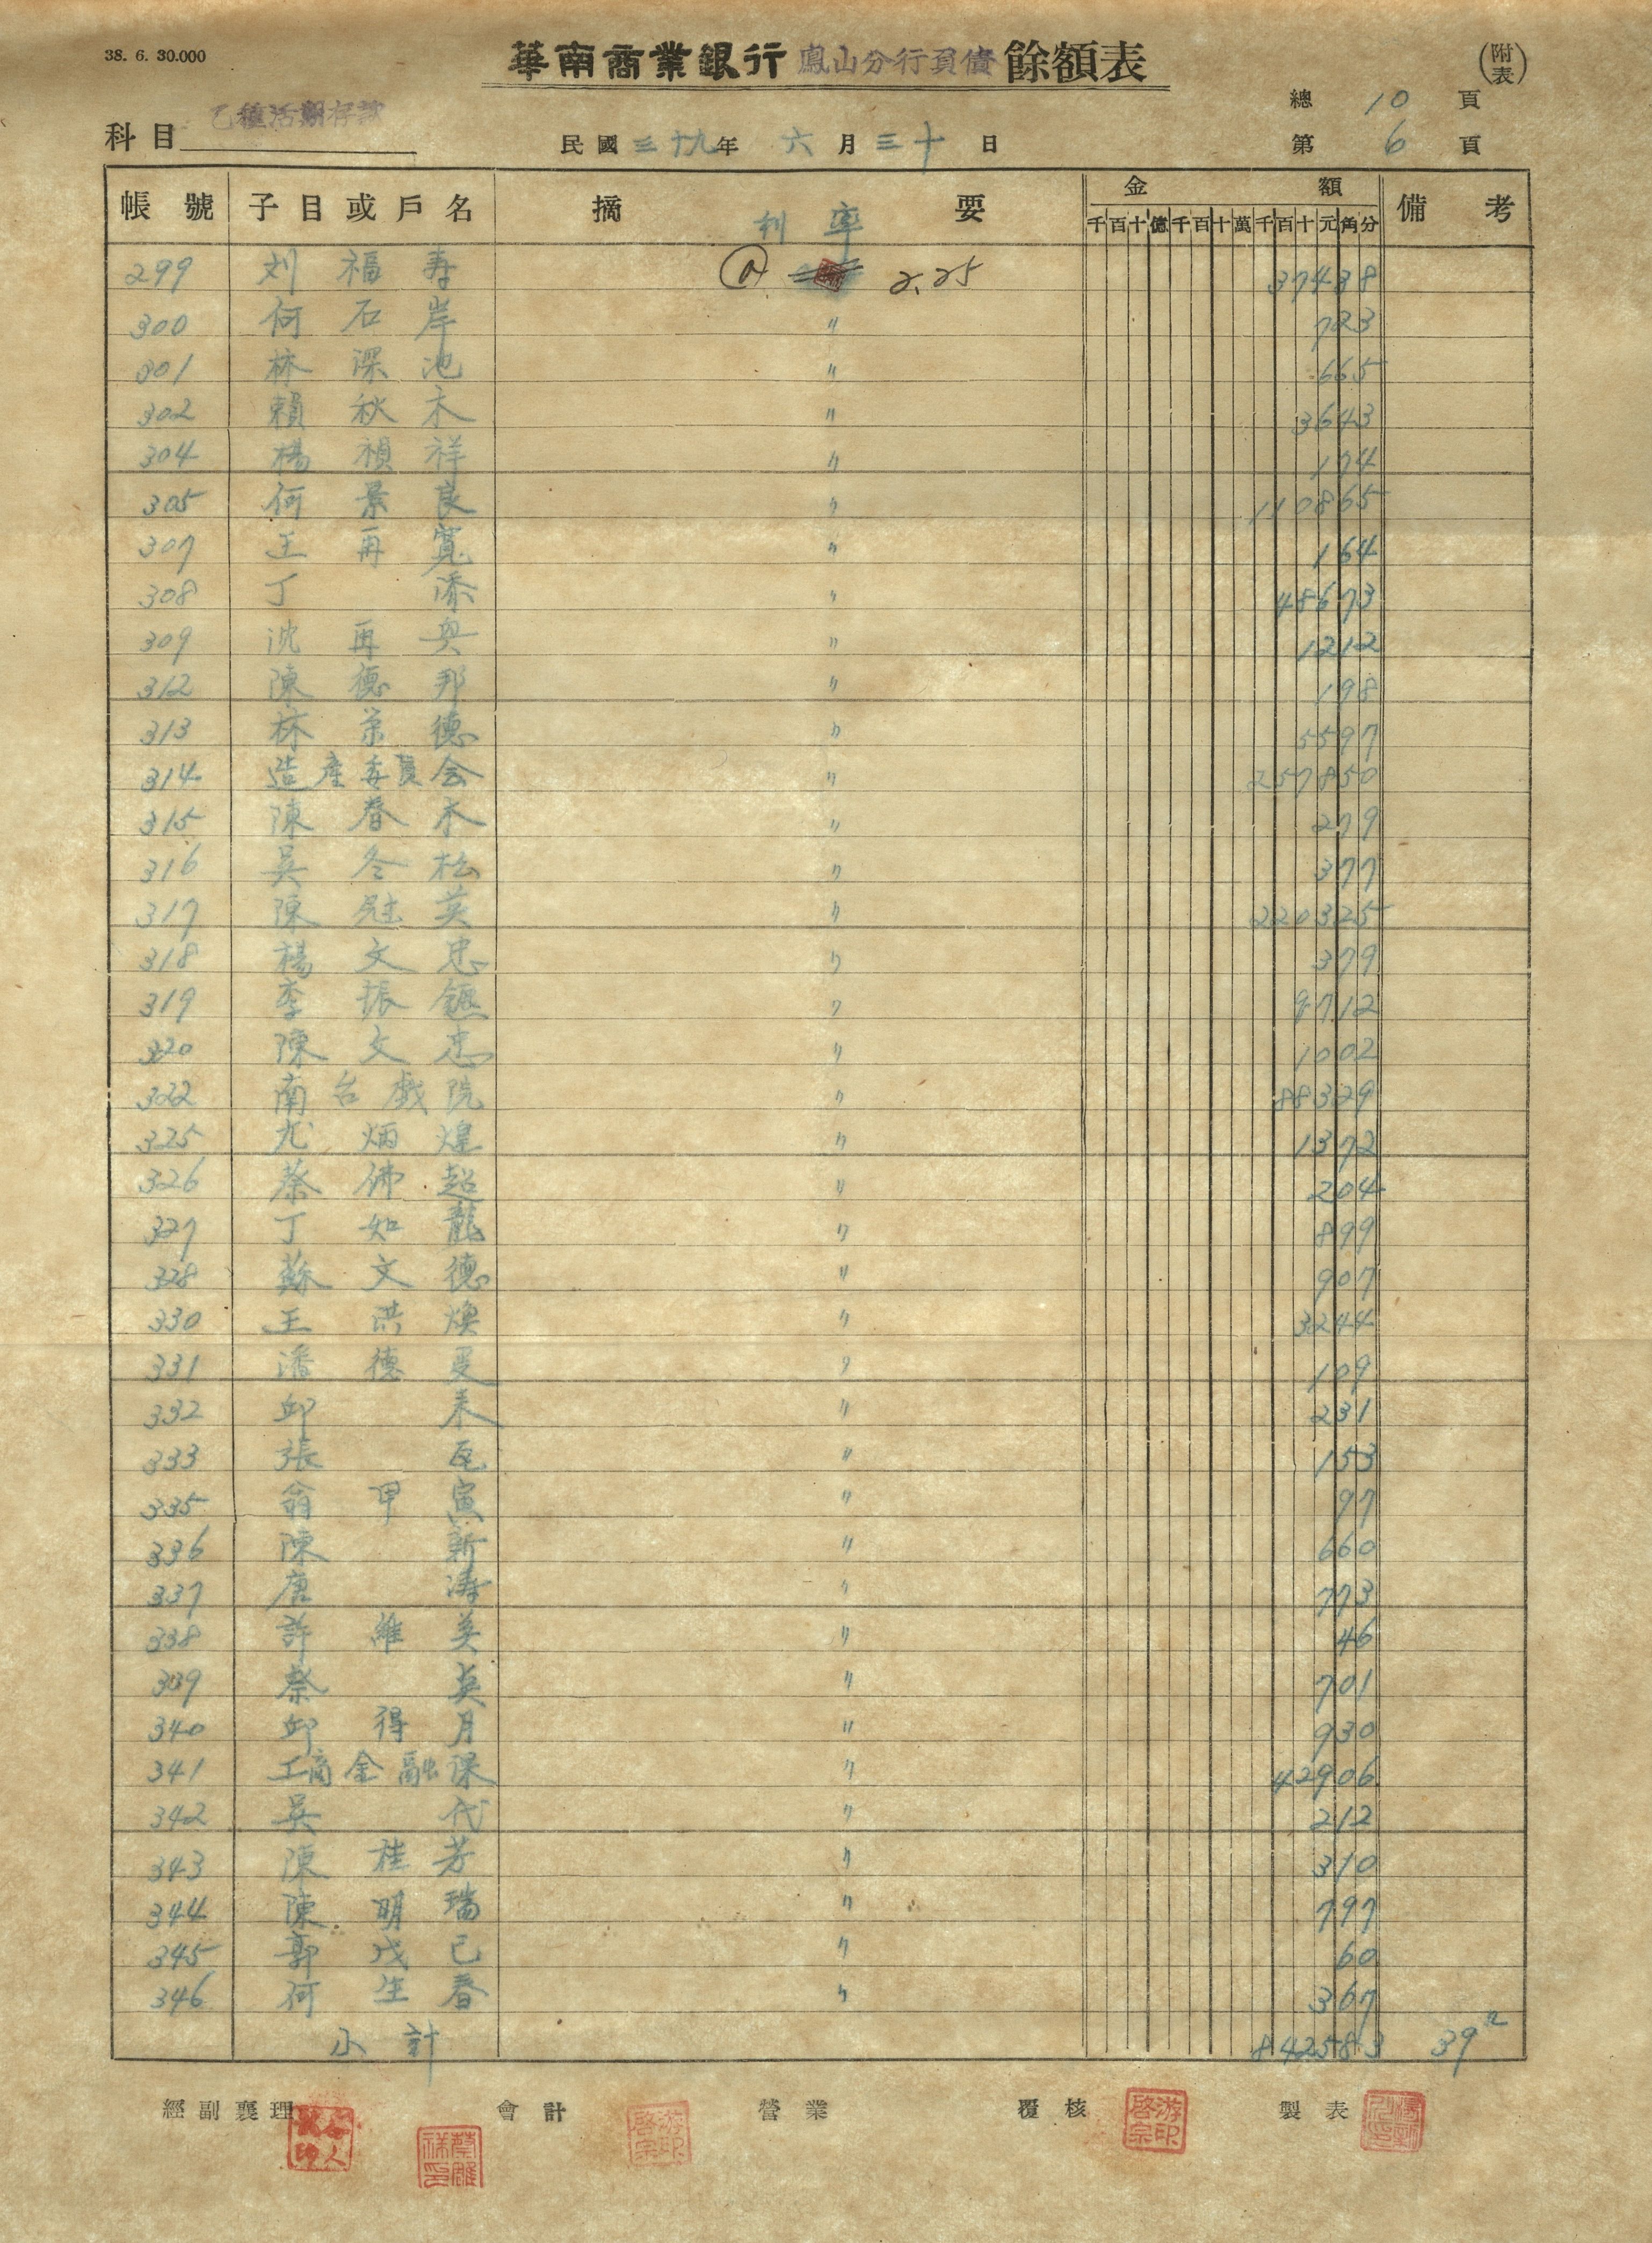 38. 6. 30.000
華南商業銀行 鳳山分行負債 餘額表
(附表)
乙種活期存款
總 10 頁
科目
民國 三十九 年 六 月 三十 日
第 6 頁
帳號 子目或戶名 摘要 金額 備考
利率
千百十億千百十萬千百十元角分
299 刘福寿 @ 2.25 37438
300 何石岸 〃 723
301 林深池 〃 665
302 賴秋木 〃 3643
304 楊禎祥 〃 174
305 何景良 〃 110865
307 王再寬 〃 164
308 丁添 〃 48673
309 沈再 〃 1212
312 陳德邦 〃 198
313 林荣德 〃 5597
314 造產委員会 〃 257850
315 陳春木 〃 279
316 吳冬松 〃 377
317 陳冠英 〃 220325
318 楊文忠 〃 379
319 李振 〃 9712
320 陳文忠 〃 1002
322 南台戲院 〃 88329
325 尤炳煌 〃 1372
326 蔡佛超 〃 204
327 丁如龍 〃 899
328 蘇文德 〃 907
330 王洪煥 〃 3244
331 潘德 〃 109
332 邱来 〃 231
333 張 〃 153
335 翁甲寅 〃 97
336 陳新 〃 660
337 唐涛 〃 773
338 許維英 〃 46
339 蔡英 〃 701
340 邱得月 〃 930
341 工商金融課 〃 42906
342 吳代 〃 212
343 陳桂芳 〃 310
344 陳明瑞 〃 797
345 郭戊己 〃 60
346 何生春 〃 367
小計 842583 39
經副襄理 會計 營業 覆核 製表
蔡雕祥印
游啓宗印
游啓宗印